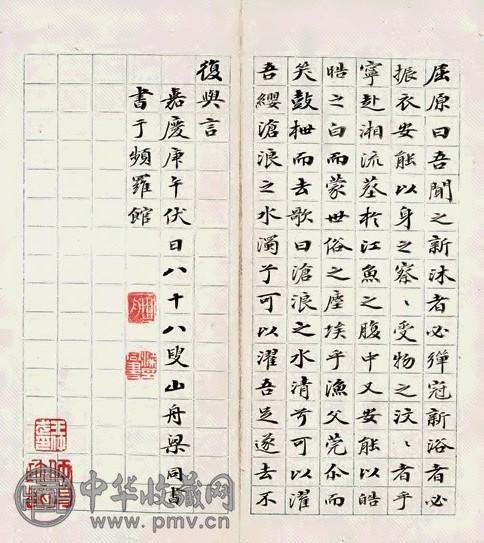 屈原曰吾聞之新沐者必彈冠新浴者必
振衣安能以身之察、受物之汶、者乎
寧赴湘流葬於江魚之腹中又安能以皓
皓之白而蒙世俗之塵埃乎漁父莞尒而
笑鼓枻而去歌曰滄浪之水清兮可以濯
吾纓滄浪之水濁兮可以濯吾足遂去不
復與言
嘉慶庚午伏日八十八叟山舟梁同書
書于頻羅館
中华收藏网
www.pmv.cn